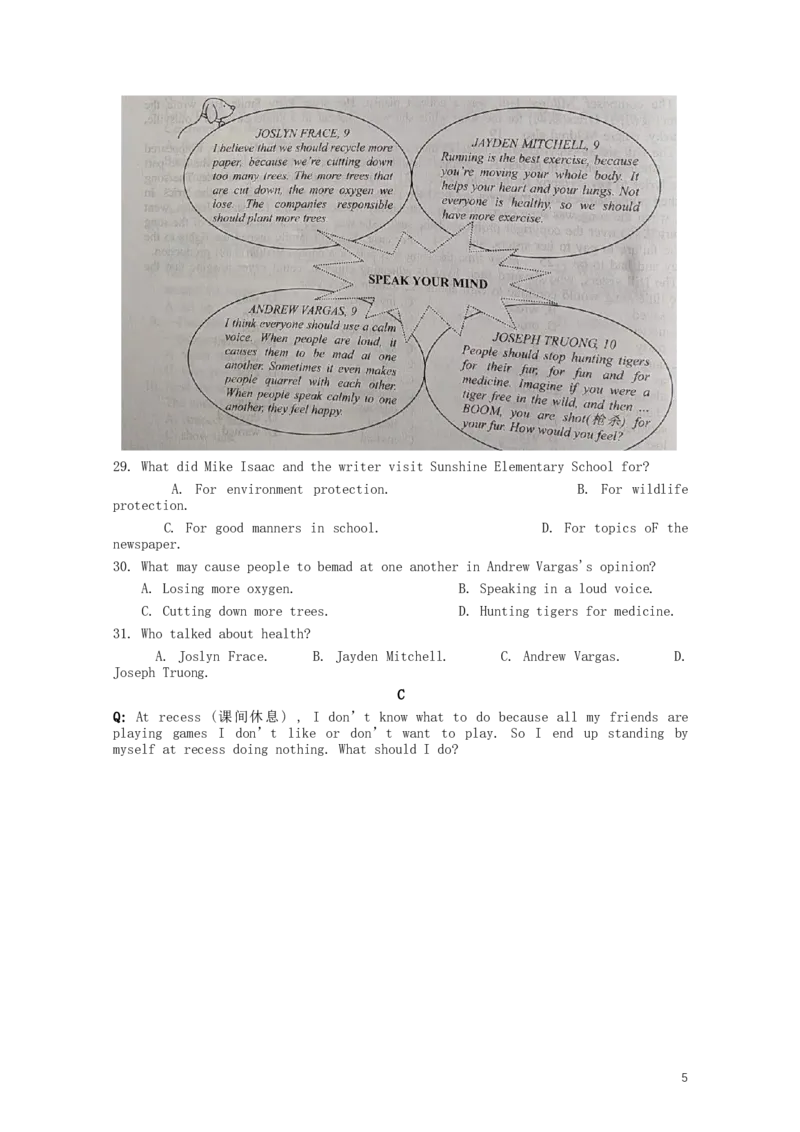 JOSLYN FRACE, 9
I believe that we should recycle more
paper, because we're cutting down
too many trees. The more trees that
are cut down, the more oxygen we
lose. The companies responsible
should plant more trees
JAYDEN MITCHELL, 9
Running is the best exercise, because
you're moving your whole body. It
helps your heart and your lungs. Not
everyone is healthy, so we should
have more exercise.
SPEAK YOUR MIND
ANDREW VARGAS, 9
I think everyone should use a calm
voice. When people are loud, it
causes them to be mad at one
another. Sometimes it even makes
people quarrel with each other.
When people speak calmly to one
another, they feel happy.
JOSEPH TRUONG, 10
People should stop hunting tigers
for their fur, for fun and for
medicine. Imagine if you were a
tiger free in the wild, and then ...
BOOM, you are shot(枪杀) for
your fur. How would you feel?
29. What did Mike Isaac and the writer visit Sunshine Elementary School for?
A. For environment protection. B. For wildlife
protection.
C. For good manners in school. D. For topics oF the
newspaper.
30. What may cause people to bemad at one another in Andrew Vargas's opinion?
A. Losing more oxygen. B. Speaking in a loud voice.
C. Cutting down more trees. D. Hunting tigers for medicine.
31. Who talked about health?
A. Joslyn Frace. B. Jayden Mitchell. C. Andrew Vargas. D.
Joseph Truong.
C
Q: At recess (课间休息) , I don't know what to do because all my friends are
playing games I don't like or don't want to play. So I end up standing by
myself at recess doing nothing. What should I do?
5